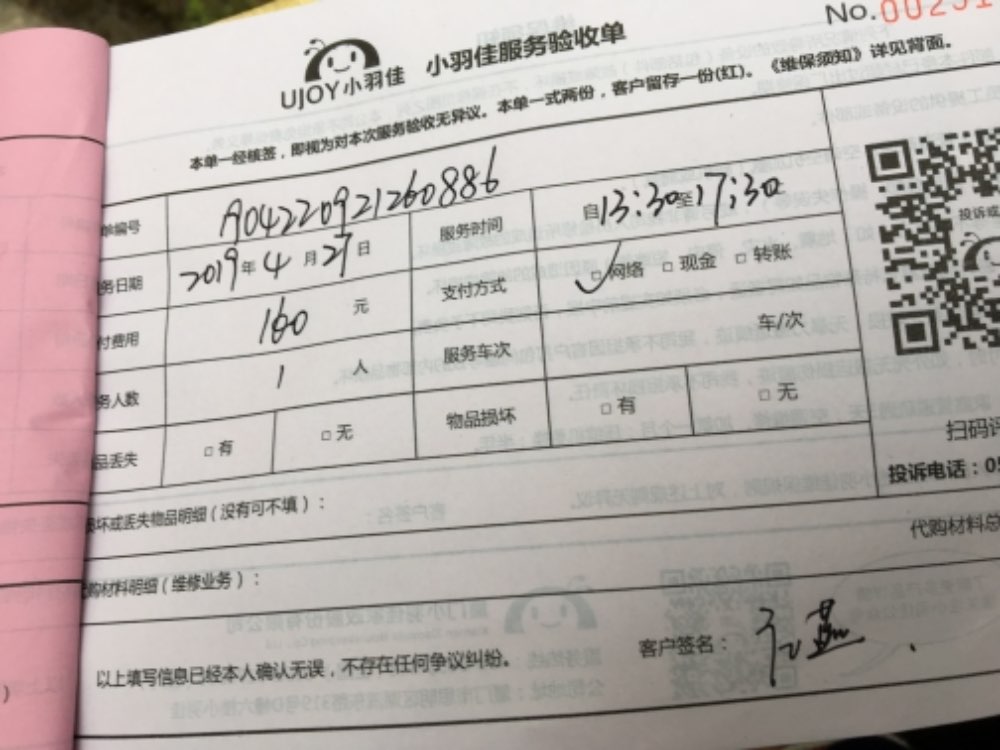 No.00291
UJOY小羽佳 小羽佳服务验收单
本单一经核签，即视为对本次服务验收无异议。本单一式两份，客户留存一份(红)。《维保须知》详见背面。
单编号 A04220921260886 服务时间 自13:30至17:30
务日期 2019年4月29日 支付方式 ☑网络 □现金 □转账
付费用 160 元 服务车次 车/次
务人数 1 人 物品损坏 □有 □无
品丢失 □有 □无
投诉或
扫码评
投诉电话：05
损坏或丢失物品明细（没有可不填）：
代购材料总
购材料明细（维修业务）：
以上填写信息已经本人确认无误，不存在任何争议纠纷。 客户签名：